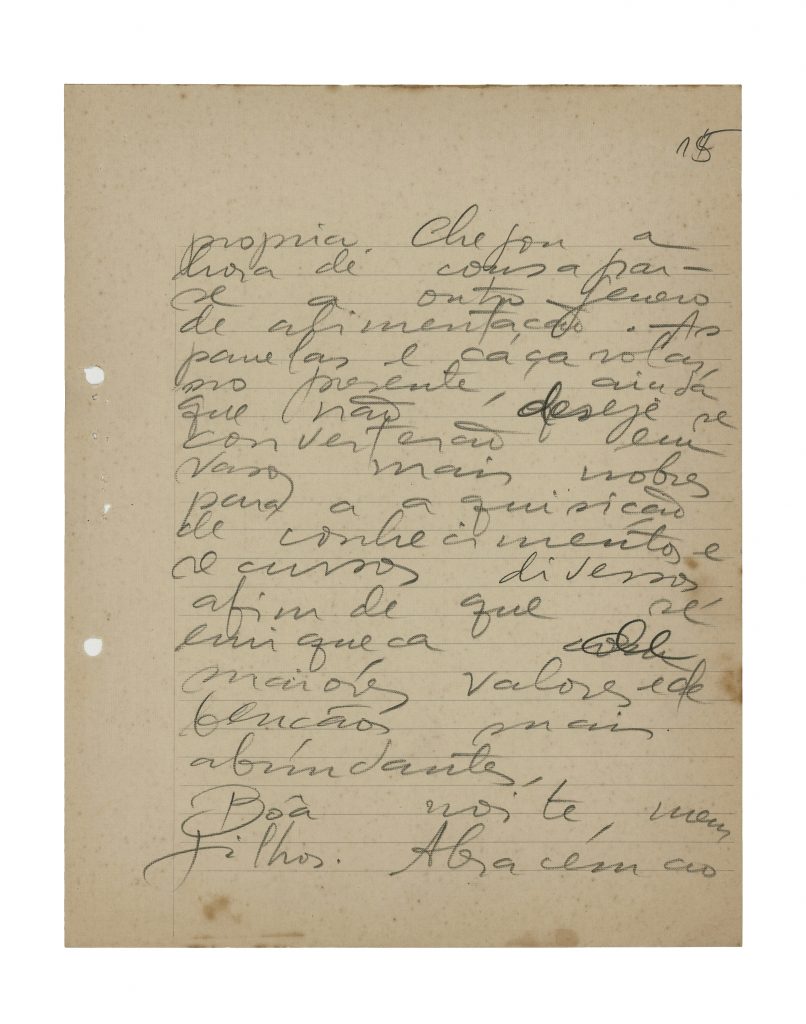 15
propria. Chegou a
hora de consagrar-
se a outro genero
de alimentação. As
panelas e caçarolas
no presente, ainda
que não deseje se
converterão em
vasos mais nobres
para a aquisição
de conhecimentos e
recursos diversos
afim de que se
enriqueca de
maiores valores e de
bençãos mais
abundantes,
Bôa noite, meus
filhos. Abracém ao